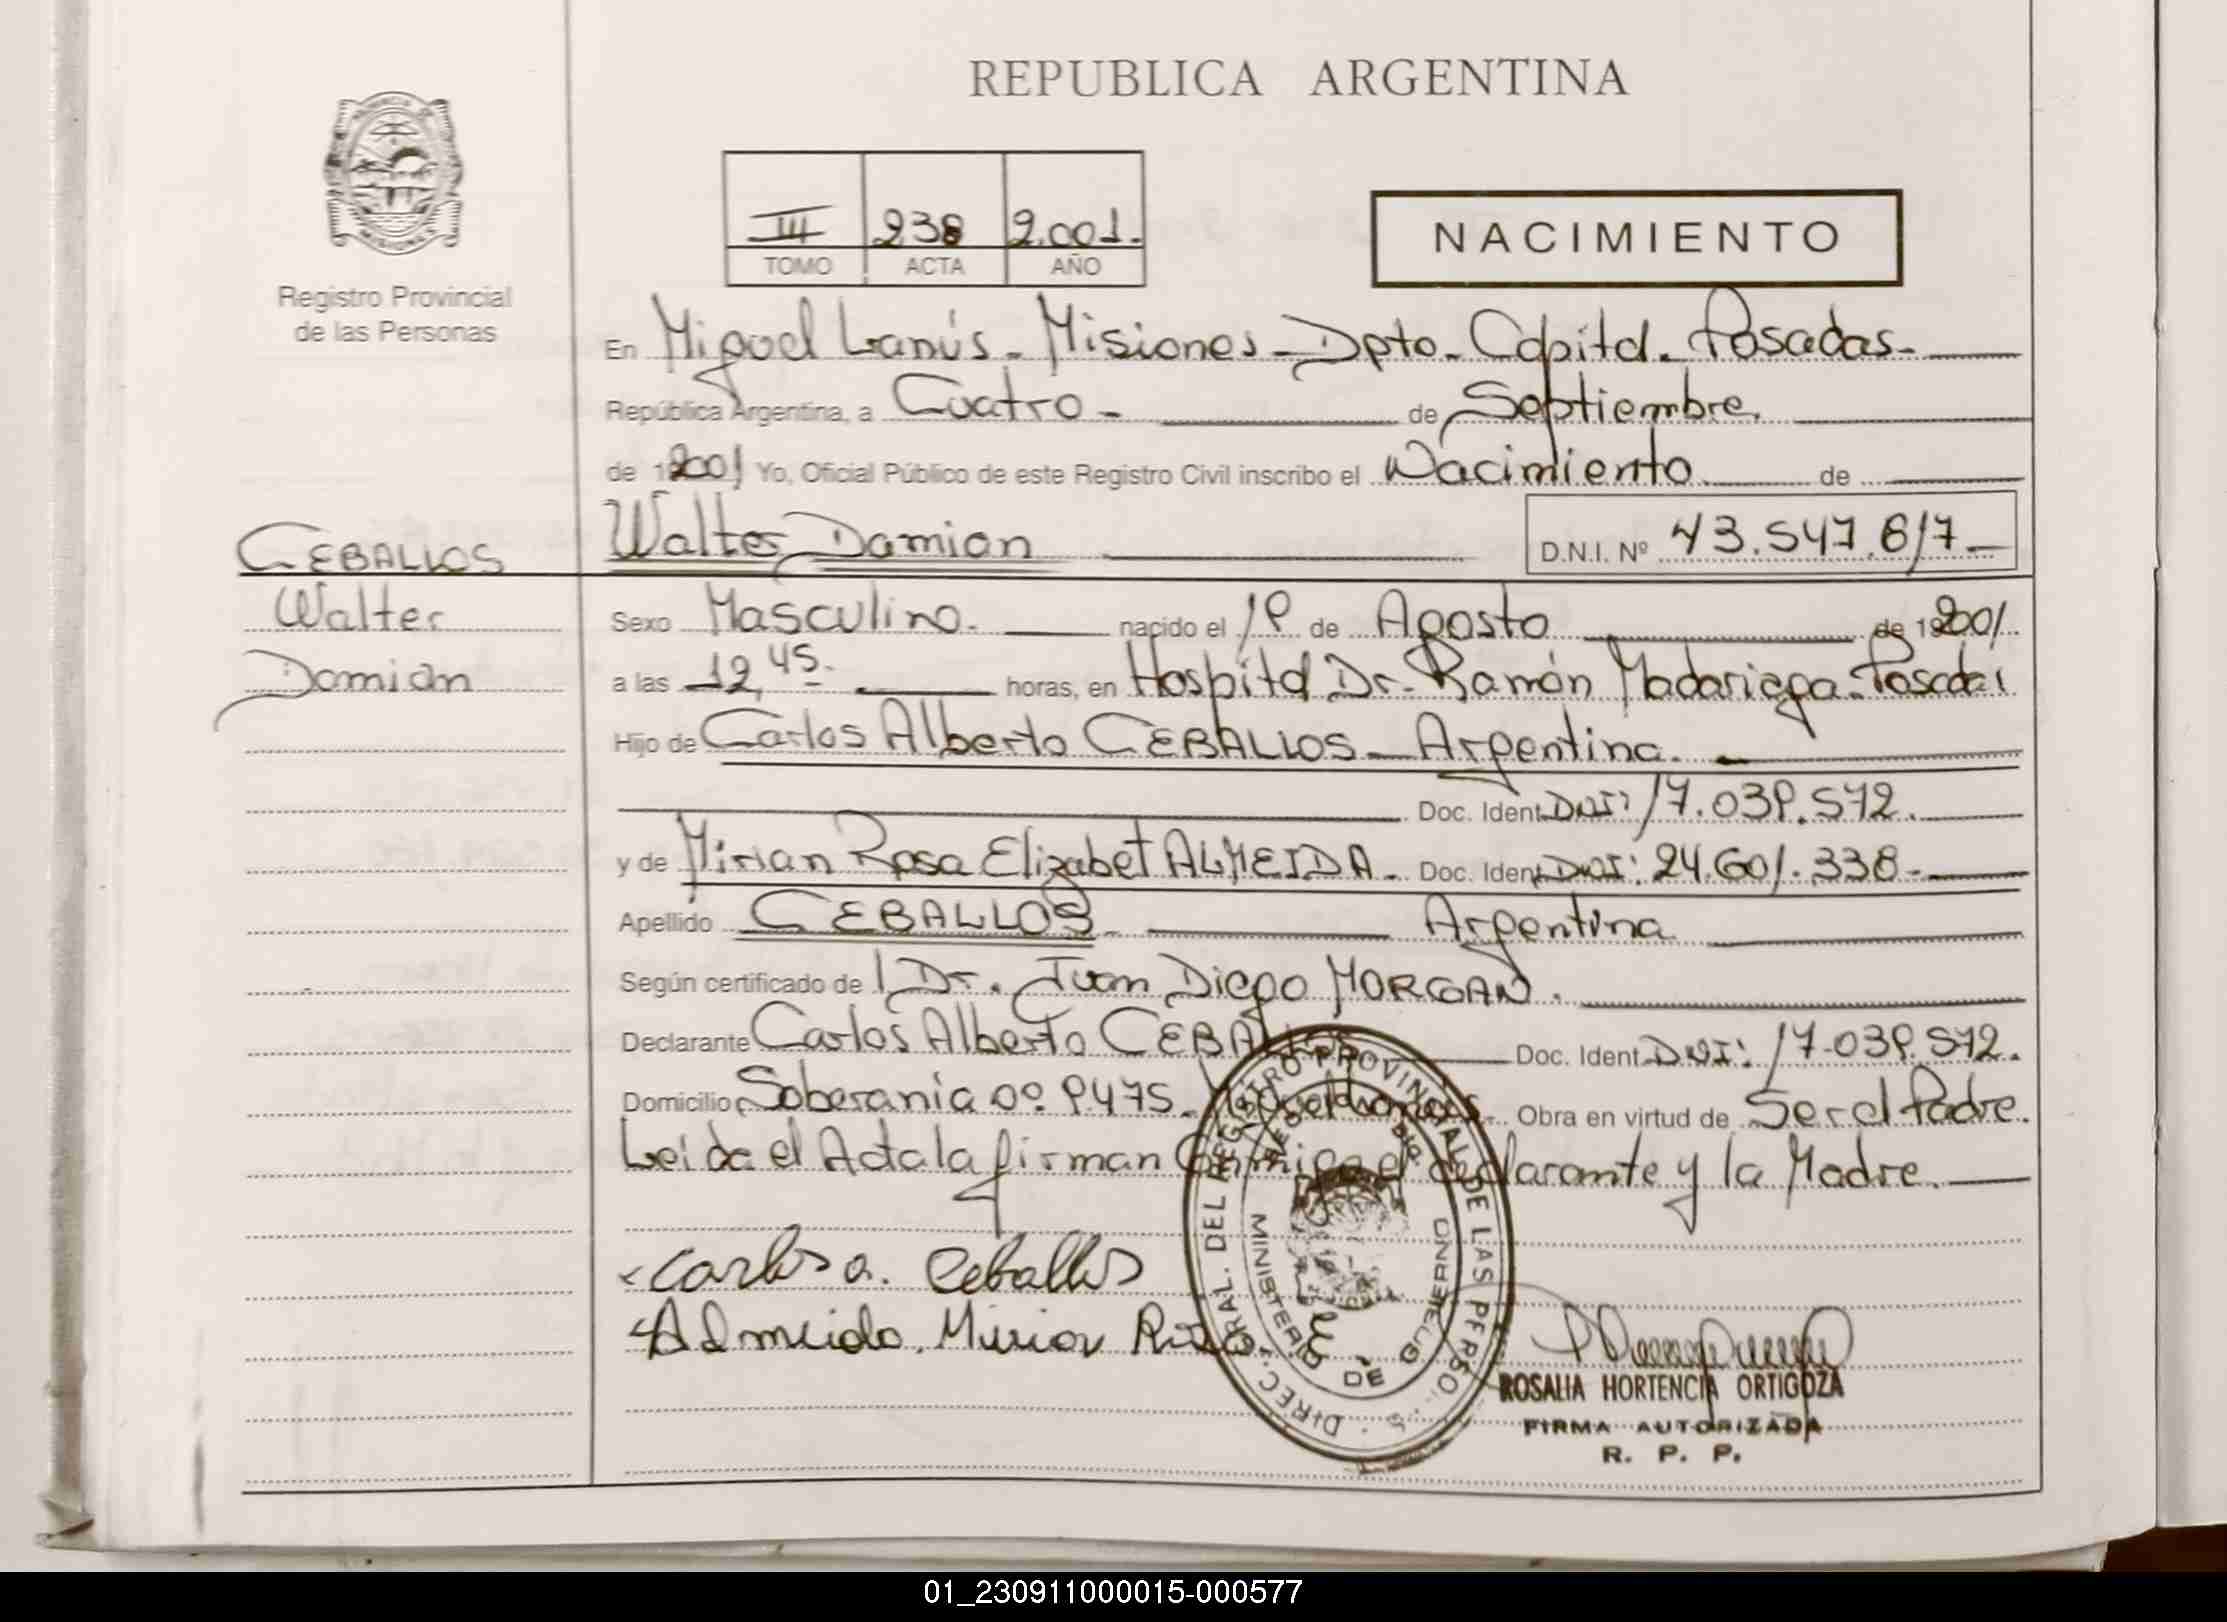 REPUBLICA ARGENTINA
PROVINCIA DE MISIONES
Registro Provincial
de las Personas
III 238 2.001.
TOMO ACTA AÑO
NACIMIENTO
En Miguel Lanús. Misiones - Dpto. Capital. Posadas.
República Argentina, a Cuatro - de Septiembre.
de 2001 Yo, Oficial Público de este Registro Civil inscribo el Nacimiento de
CEBALLOS
Walter
Damián
Walter Damian
D.N.I. Nº 43.547.617
Sexo Masculino. nacido el 19 de Agosto de 2001.
a las 12,45. horas, en Hospital Dr. Ramón Madariaga. Posadas
Hijo de Carlos Alberto CEBALLOS - Argentina.
Doc. Ident. DNI: 17.039.572.
y de Mirian Rosa Elizabet ALMEIDA. Doc. Ident. DNI: 24.601.338.
Apellido CEBALLOS. Argentina
Según certificado de Dr. Juan Diego MORGAN.
Declarante Carlos Alberto CEBALLOS Doc. Ident. DNI: 17.039.572.
Domicilio Soberanía nº 9475. Obra en virtud de Ser el Padre.
Leída el Acta la firman Conmigo el declarante y la Madre.
Carlos a. Ceballos
Almeida. Mirian Rosa E.
DIREC. GRAL. DEL REGISTRO PROVINCIAL DE LAS PERSONAS
MINISTERIO DE GOBIERNO
ROSALIA HORTENCIA ORTIGOZA
FIRMA AUTORIZADA
R. P. P.
01_230911000015-000577